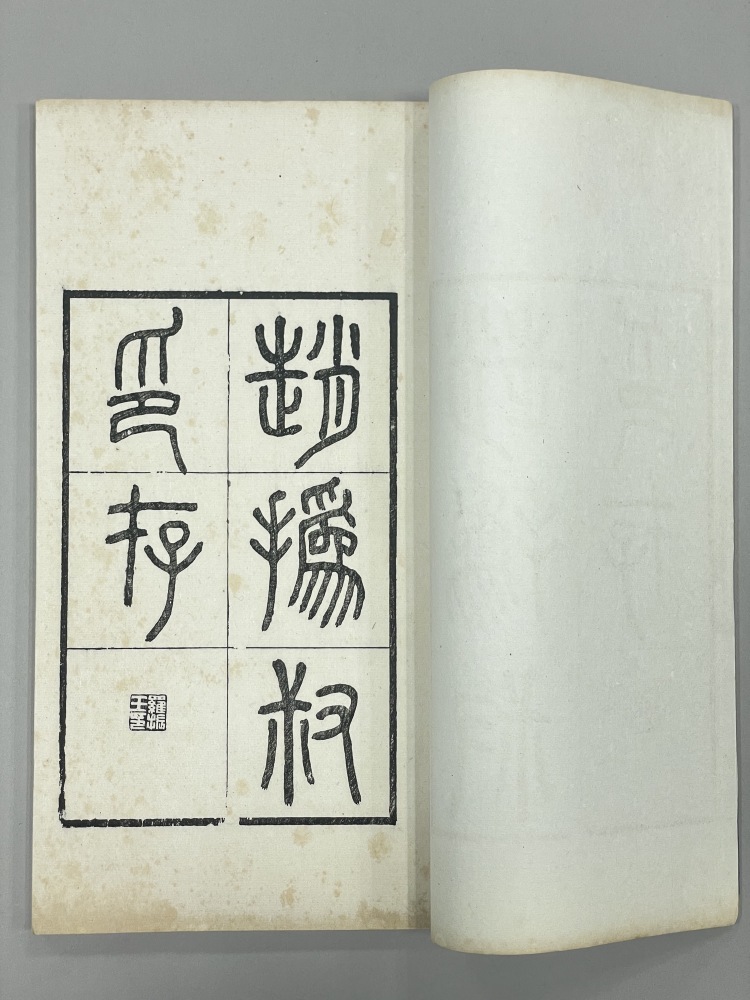 趙撝叔
印存
羅振
玉印